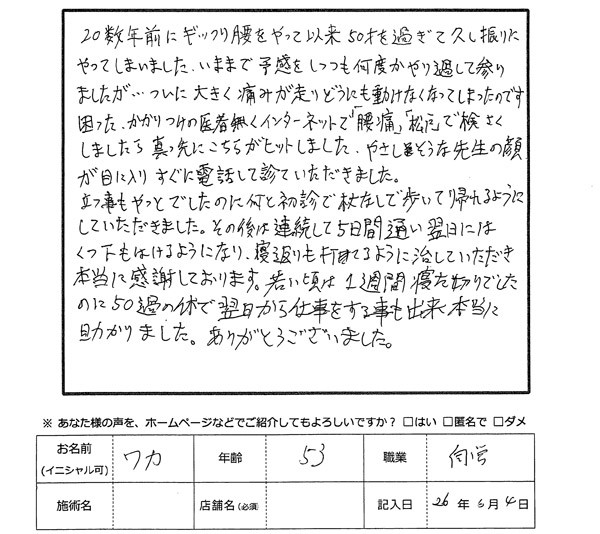 20数年前にギックリ腰をやって以来50才を過ぎて久し振りに
やってしまいました、いままで予感をしつつも何度かやり過して参り
ましたが…ついに大きく痛みが走りどうにも動けなくなってしまったのです
困った、かかりつけの医者無くインターネットで「腰痛」「松尾」で検さく
しましたら真っ先にこちらがヒットしました、やさしそうな先生の顔
が目に入りすぐに電話して診ていただきました。
立つ事もやっとでしたのに何と初診で杖なしで歩いて帰れるように
していただきました。その後は連続して5日間通い翌日には
くつ下もはけるようになり、寝返りも打てるように治していただき
本当に感謝しております。若い頃は1週間寝た切りでした
のに50過の体で翌日から仕事をする事も出来本当に
助かりました。ありがとうございました。
※ あなた様の声を、ホームページなどでご紹介してもよろしいですか？ □はい □匿名で □ダメ
お名前 ワカ 年齢 53 職業
(イニシャル可)
施術名 店舗名(必須) 記入日 26年 6月 4日